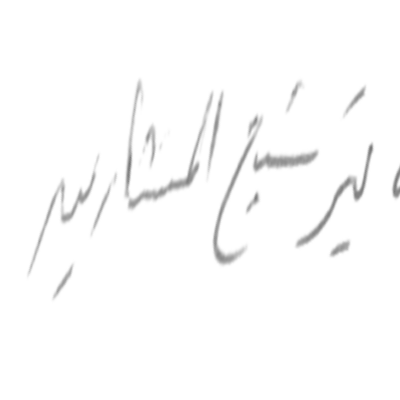 لترشيح المشاريع